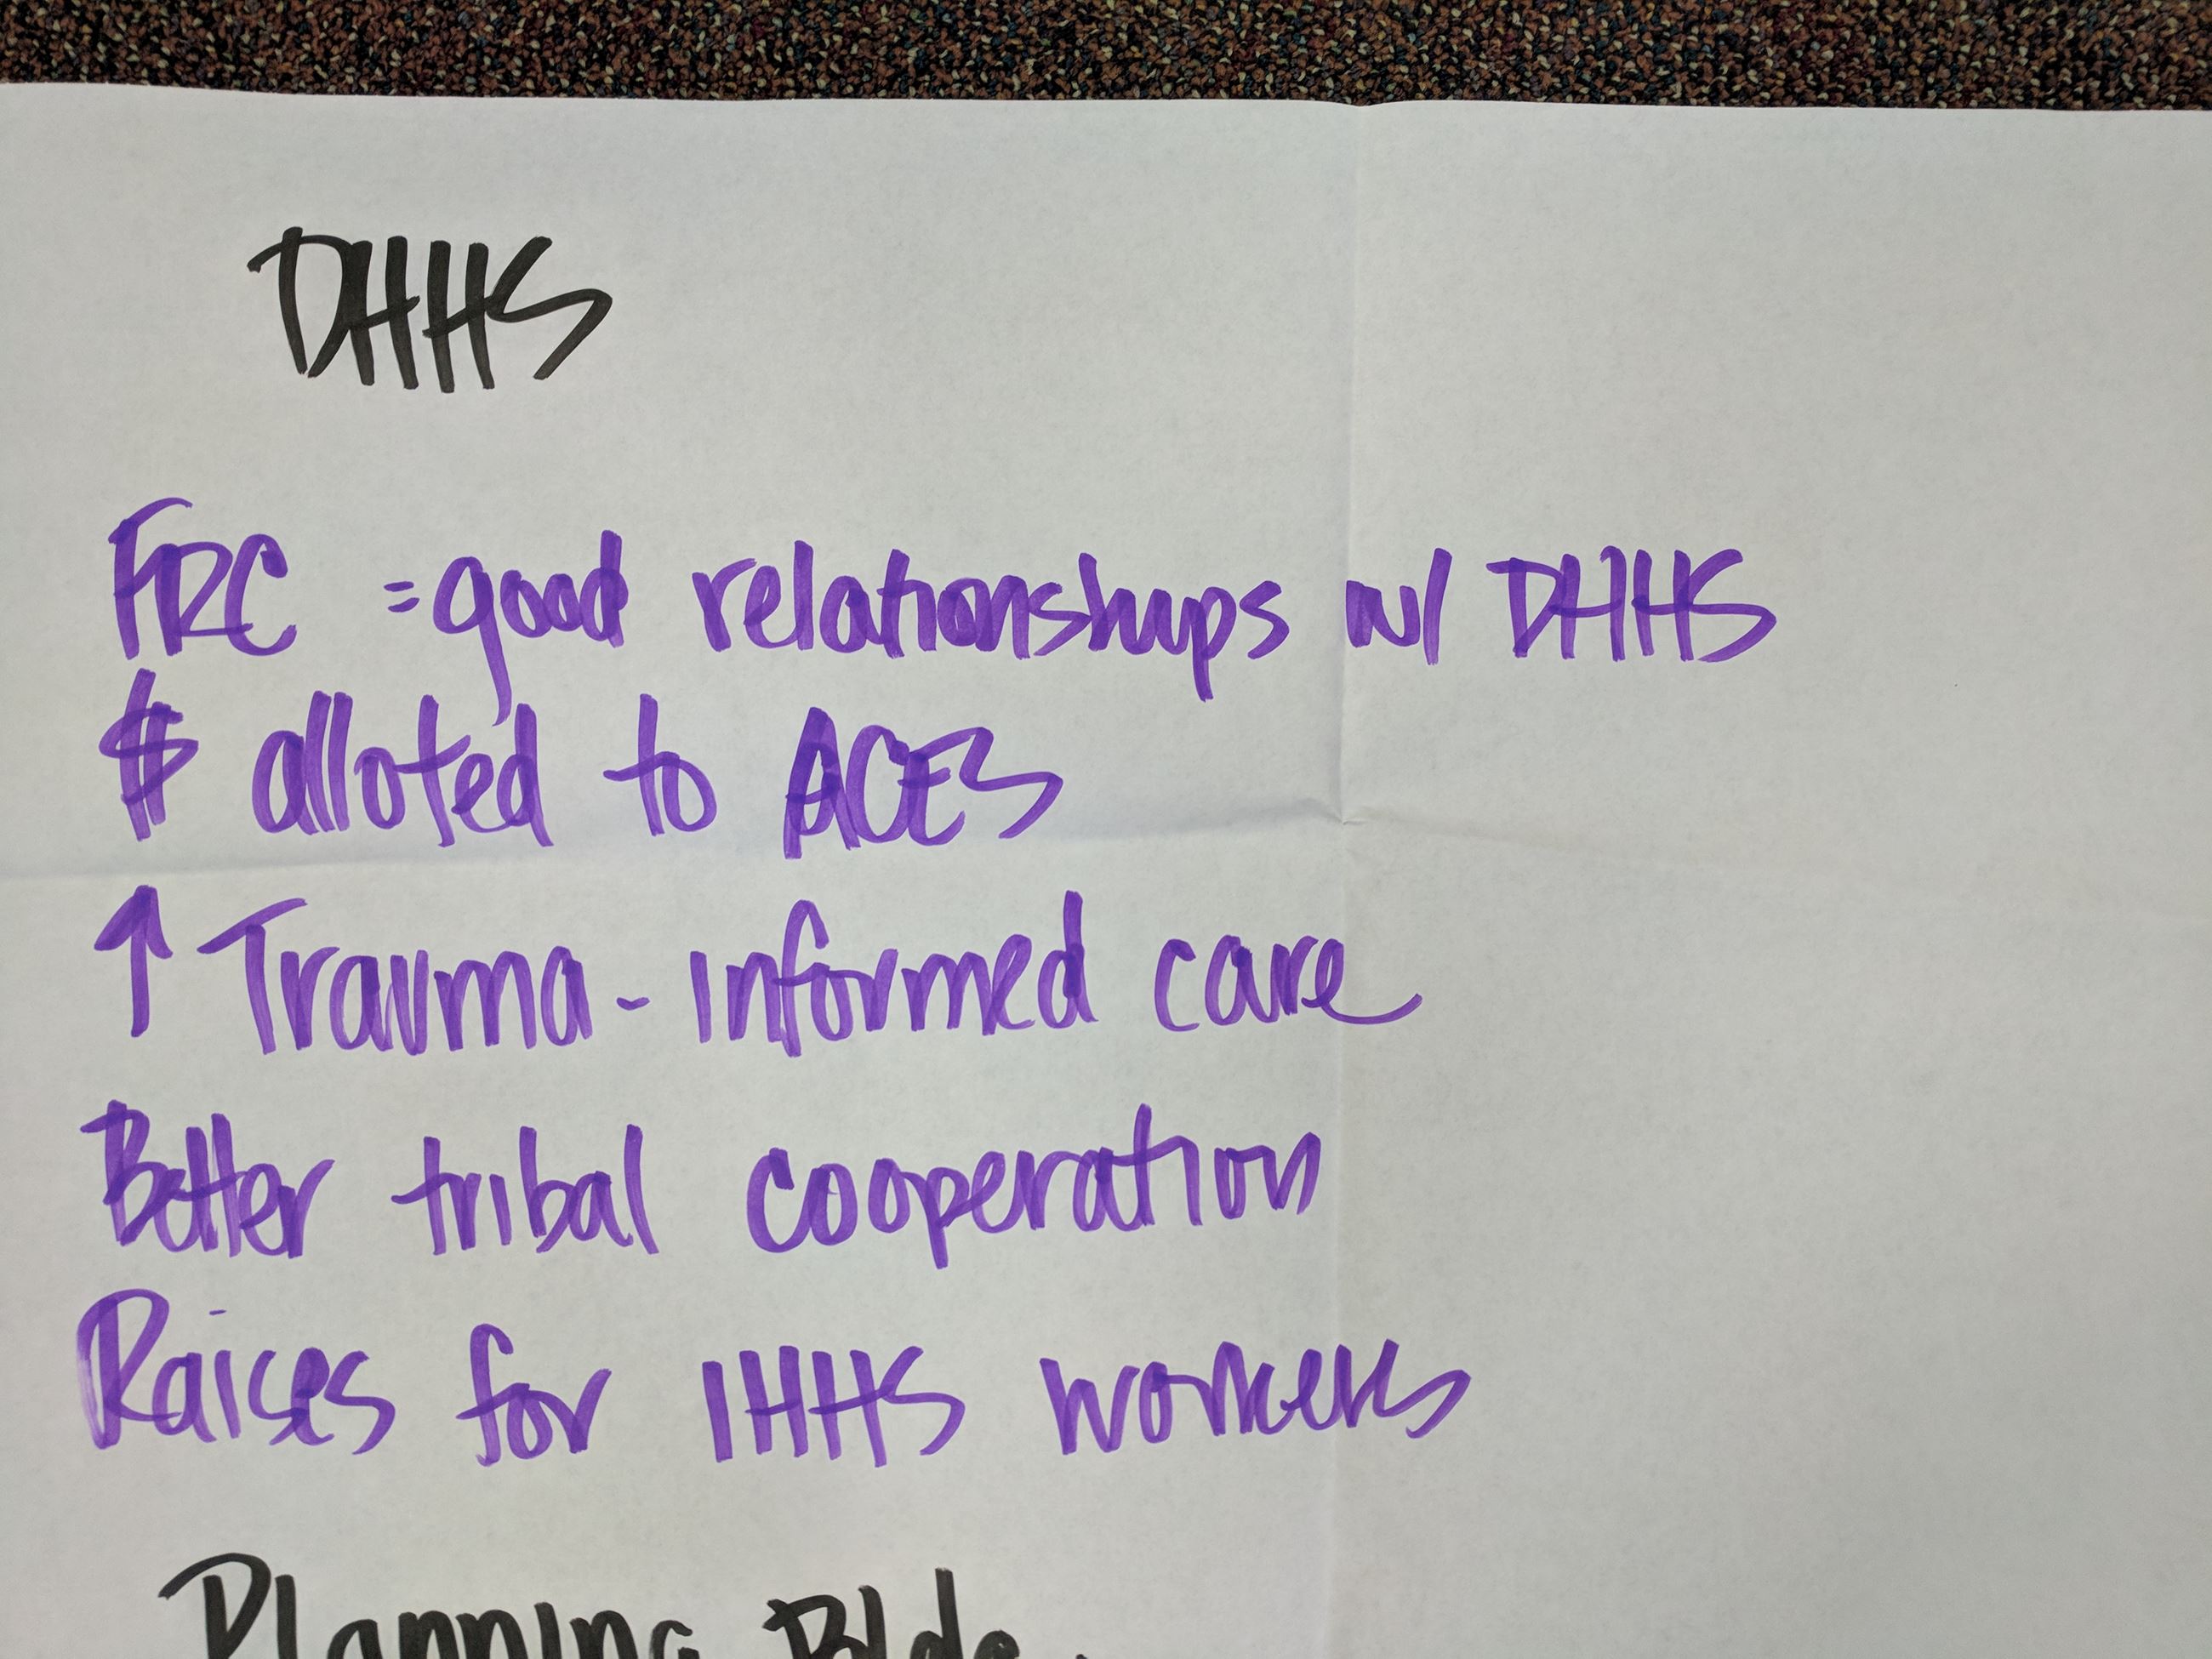 DHHS
FRC = good relationships w/ DHHS
$ alloted to ACES
↑ Trauma-informed care
Better tribal cooperation
Raises for IHHS workers
Planning Bldg.